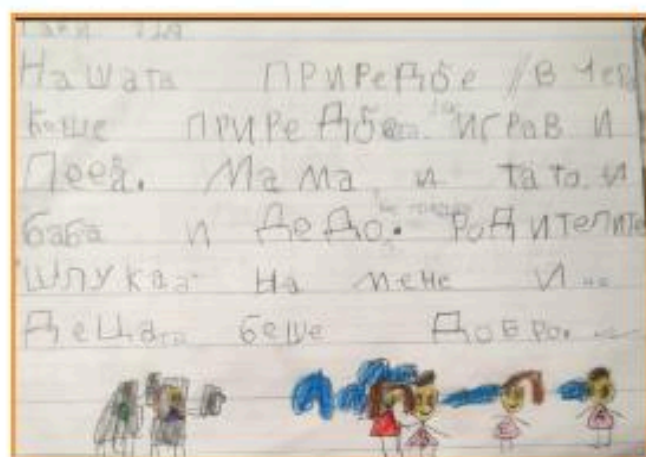 Нашата ПРИРеДБе // ВЧера
беше ПРИРеДБа. ИГРАВ И
Пеев. Мама и тато и
баба и Дедо. РОДИТеЛИТе
ШЛУКаа На мене и на
ДеЦата беше ДОБРО.